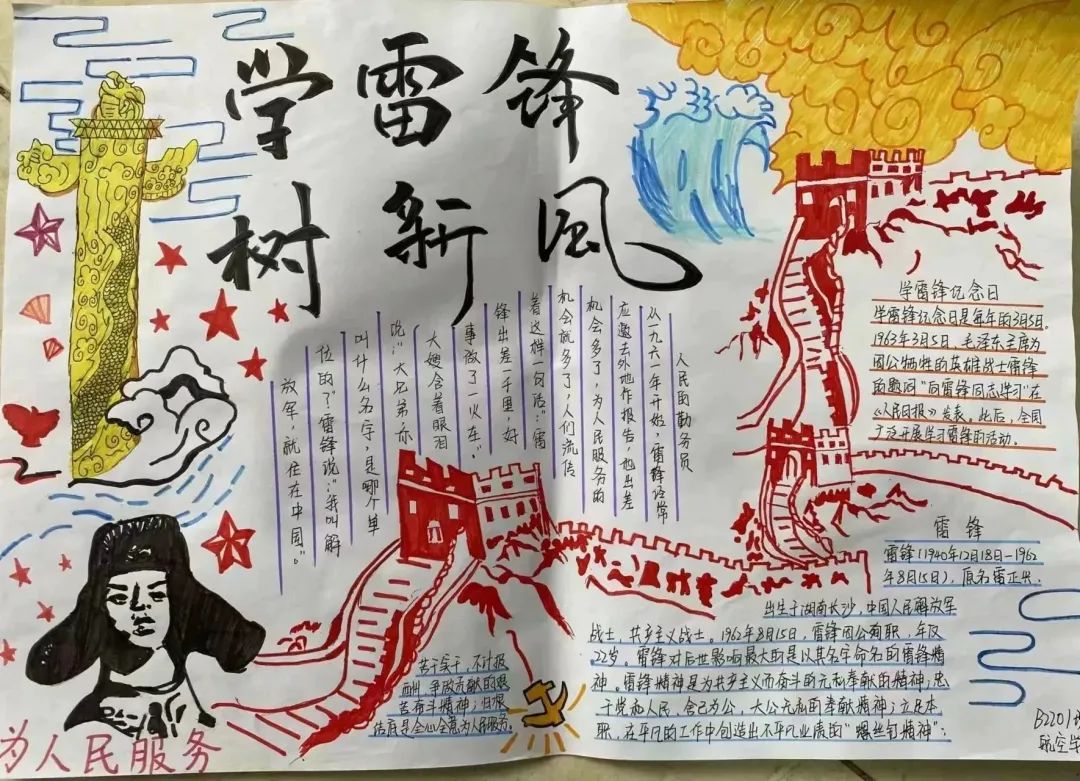 学雷锋
树新风
人民的勤务员
从一九六一年开始，雷锋经常
应邀去外地作报告，他出差
机会多了，为人民服务的
机会就多了，人们流传
着这样一句话：“雷
锋出差一千里，好
事做了一火车。”
大嫂含着眼泪
说：“大兄弟你
叫什么名字，是哪个单
位的？”雷锋说：“我叫解
放军，就住在中国。”
学雷锋纪念日
学雷锋纪念日是每年的3月5日。
1963年3月5日，毛泽东主席为
因公牺牲的英雄战士雷锋
的题词“向雷锋同志学习”在
《人民日报》发表。此后，全国
广泛开展学习雷锋的活动。
雷锋
雷锋（1940年12月18日—1962
年8月15日），原名雷正兴，
出生于湖南长沙，中国人民解放军
战士，共产主义战士。1962年8月15日，雷锋因公殉职，年仅
22岁。雷锋对后世影响最大的是以其名字命名的雷锋精
神。雷锋精神是为共产主义而奋斗的无私奉献的精神；忠
于党和人民，舍己为公，大公无私的奉献精神；立足本
职，在平凡的工作中创造出不平凡业绩的“螺丝钉精神”；
苦干实干，不计报
酬，争做贡献的艰
苦奋斗精神；归根
结底是全心全意为人民服务。
为人民服务
B2201
航空学